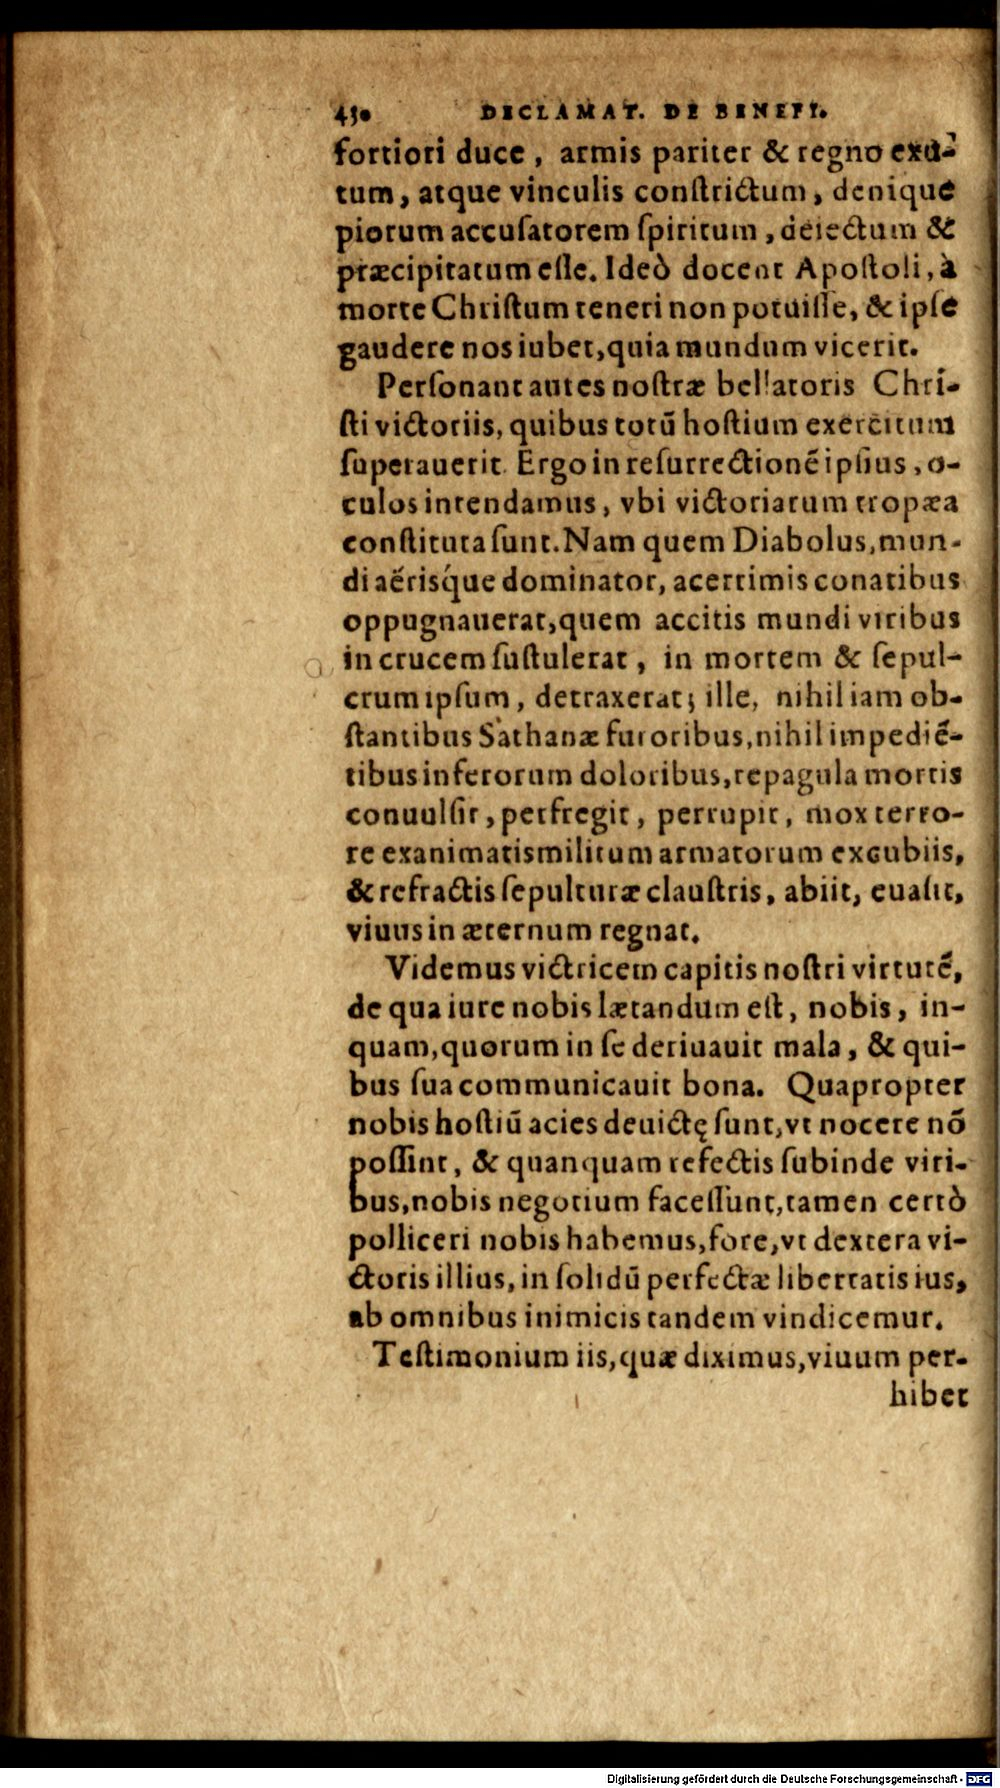 450 DECLAMAT. DE BENEFI.
fortiori duce, armis pariter & regno exu-
tum, atque vinculis conſtrictum, denique
piorum accuſatorem ſpiritum, deiectum &
præcipitatum eſſe. Ideò docent Apoſtoli, à
morte Chriſtum teneri non potuiſſe, & ipſe
gaudere nos iubet, quia mundum vicerit.
Perſonant aures noſtræ bellatoris Chri-
ſti victoriis, quibus totū hoſtium exercitum
ſuperauerit. Ergo in reſurrectionē ipſius, o-
culos intendamus, vbi victoriarum tropæa
conſtituta ſunt. Nam quem Diabolus, mun-
di aërisque dominator, acerrimis conatibus
oppugnauerat, quem accitis mundi viribus
in crucem ſuſtulerat, in mortem & ſepul-
crum ipſum, detraxerat; ille, nihil iam ob-
ſtantibus Sathanæ furoribus, nihil impediē-
tibus inferorum doloribus, repagula mortis
conuulſit, perfregit, perrupit, mox terro-
re exanimatis militum armatorum excubiis,
& refractis ſepulturæ clauſtris, abiit, euaſit,
viuus in æternum regnat.
Videmus victricem capitis noſtri virtutē,
de qua iure nobis lætandum eſt, nobis, in-
quam, quorum in ſe deriuauit mala, & qui-
bus ſua communicauit bona. Quapropter
nobis hoſtiū acies deuictę ſunt, vt nocere nō
poſſint, & quanquam refectis ſubinde viri-
bus, nobis negotium faceſſunt, tamen certò
polliceri nobis habemus, fore, vt dextera vi-
ctoris illius, in ſolidū perfectæ libertatis ius,
ab omnibus inimicis tandem vindicemur.
Teſtimonium iis, quæ diximus, viuum per-
hibet
Digitalisierung gefördert durch die Deutsche Forschungsgemeinschaft - DFG